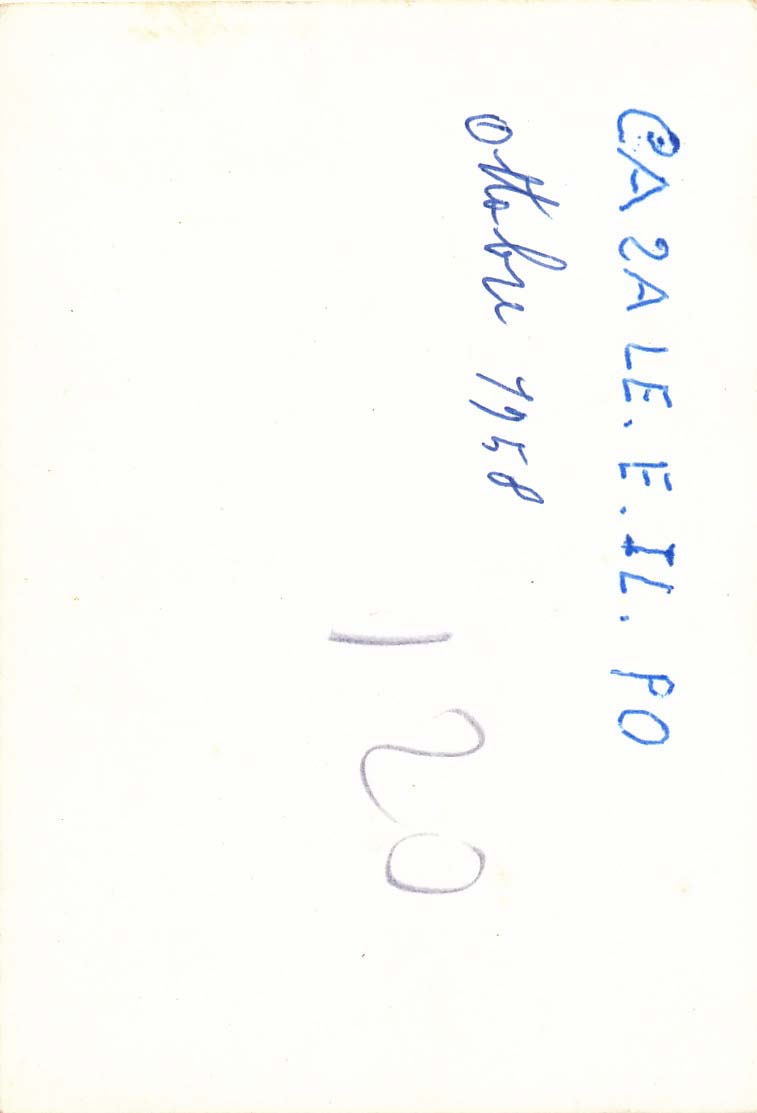 CASALE. E. IL. PO
ottobre 1958
120